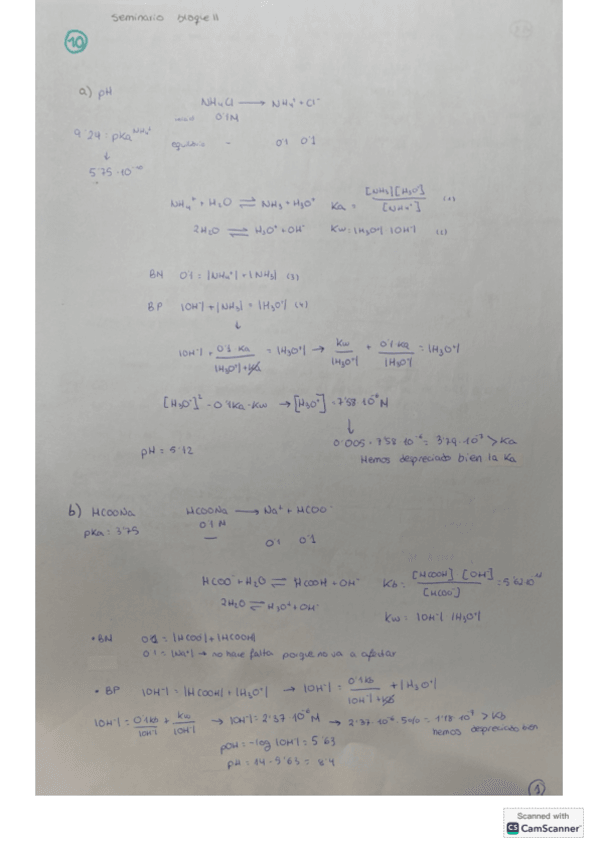 Seminario bloque II
10
a) pH
NH₄Cl ⟶ NH₄⁺ + Cl⁻
0'1M
9'24 = pKa NH₄⁺
equilibrio - 0'1 0'1
↓
5'75·10⁻¹⁰
NH₄⁺ + H₂O ⇌ NH₃ + H₃O⁺ Ka = [NH₃][H₃O⁺] / [NH₄⁺] (1)
2H₂O ⇌ H₃O⁺ + OH⁻ Kw = |H₃O⁺| |OH⁻| (2)
BN 0'1 = |NH₄⁺| + |NH₃| (3)
BP |OH⁻| + |NH₃| = |H₃O⁺| (4)
↓
|OH⁻| + 0'1·Ka / |H₃O⁺| + Ka = |H₃O⁺| → Kw / |H₃O⁺| + 0'1·Ka / |H₃O⁺| = |H₃O⁺|
[H₃O⁺]² = 0'1Ka + Kw → [H₃O⁺] = 7'58·10⁻⁶ M
↓
0'005 · 7'58·10⁻⁶ = 3'79·10⁻⁷ > Ka
pH = 5'12
Hemos depreciado bien la Ka
b) HCOONa HCOONa ⟶ Na⁺ + HCOO⁻
pKa = 3'75 0'1 M
— 0'1 0'1
HCOO⁻ + H₂O ⇌ HCOOH + OH⁻ Kb = [HCOOH] [OH⁻] / [HCOO⁻]
2H₂O ⇌ H₃O⁺ + OH⁻
Kw = |OH⁻| |H₃O⁺|
• BN 0'1 = |HCOO⁻| + |HCOOH|
0'1 = |Na⁺| → no hace falta porque no va a afectar
• BP |OH⁻| = |HCOOH| + |H₃O⁺| → |OH⁻| = 0'1Kb / |OH⁻| + Kb + |H₃O⁺|
|OH⁻| = 0'1Kb / |OH⁻| + Kw / |OH⁻| → |OH⁻| = 2'37·10⁻⁶ M → 2'37·10⁻⁶ · 5% = 1'18·10⁻⁷ > Kb
hemos depreciado bien
pOH = -log |OH⁻| = 5'63
pH = 14 - 5'63 = 8'4
1
Scanned with
CS CamScanner